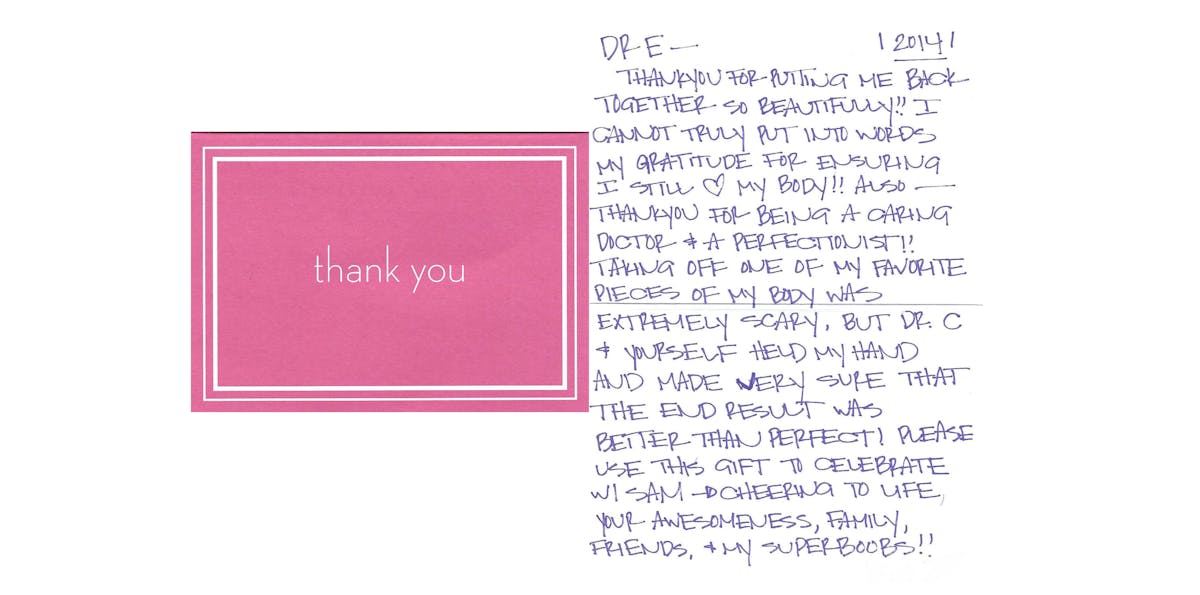 thank you
DR E — | 2014 |
THANKYOU FOR PUTTING ME BACK
TOGETHER SO BEAUTIFULLY!! I
CANNOT TRULY PUT INTO WORDS
MY GRATITUDE FOR ENSURING
I STILL ♡ MY BODY!! ALSO —
THANKYOU FOR BEING A CARING
DOCTOR & A PERFECTIONIST!!
TAKING OFF ONE OF MY FAVORITE
PIECES OF MY BODY WAS
EXTREMELY SCARY, BUT DR. C
& YOURSELF HELD MY HAND
AND MADE VERY SURE THAT
THE END RESULT WAS
BETTER THAN PERFECT! PLEASE
USE THIS GIFT TO CELEBRATE
W/ SAM → CHEERING TO LIFE,
YOUR AWESOMENESS, FAMILY,
FRIENDS, & MY SUPERBOOBS!!